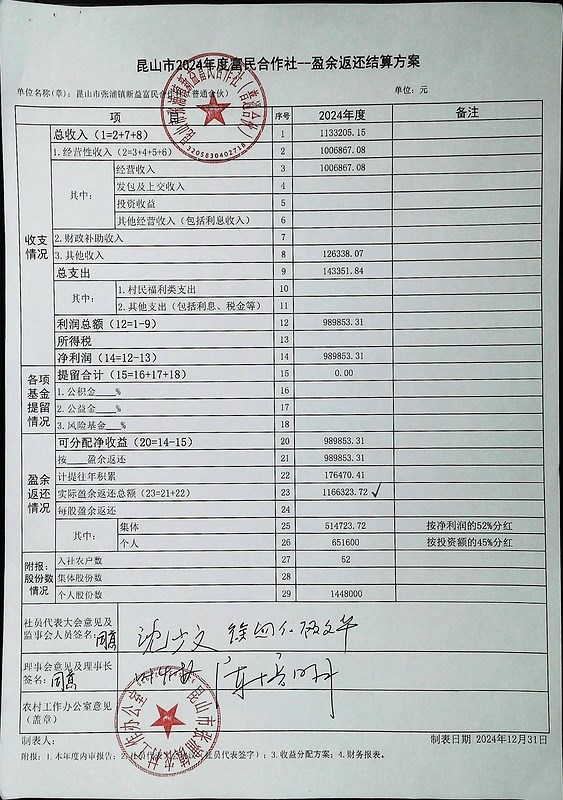 昆山市2024年度富民合作社--盈余返还结算方案
单位名称(章): 昆山市张浦镇新益富民合作社(普通合伙) 单位: 元
项 序号 2024年度 备注
收支情况
总收入(1=2+7+8) 1 1133205.15
1.经营性收入(2=3+4+5+6) 2 1006867.08
其中: 经营收入 3 1006867.08
发包及上交收入 4
投资收益 5
其他经营收入(包括利息收入) 6
2.财政补助收入 7
3.其他收入 8 126338.07
总支出 9 143351.84
其中: 1.村民福利类支出 10
2.其他支出(包括利息、税金等) 11
利润总额(12=1-9) 12 989853.31
所得税 13
净利润(14=12-13) 14 989853.31
各项基金提留情况
提留合计(15=16+17+18) 15 0.00
1.公积金____% 16
2.公益金____% 17
3.风险基金___% 18
盈余返还情况
可分配净收益(20=14-15) 20 989853.31
按____盈余返还 21 989853.31
计提往年积累 22 176470.41
实际盈余返还总额(23=21+22) 23 1166323.72 ✓
每股盈余返还 24
其中: 集体 25 514723.72 按净利润的52%分红
个人 26 651600 按投资额的45%分红
附报:股份数情况
入社农户数 27 52
集体股份数 28
个人股份数 29 1448000
社员代表大会意见及
监事会人员签名: 同意
理事会意见及理事长
签名: 同意
农村工作办公室意见
(盖章)
制表人: 制表日期 2024年12月31日
附报: 1.本年度内审报告; 2.社员代表 社员代表签字); 3.收益分配方案; 4.财务报表。
3205830402718